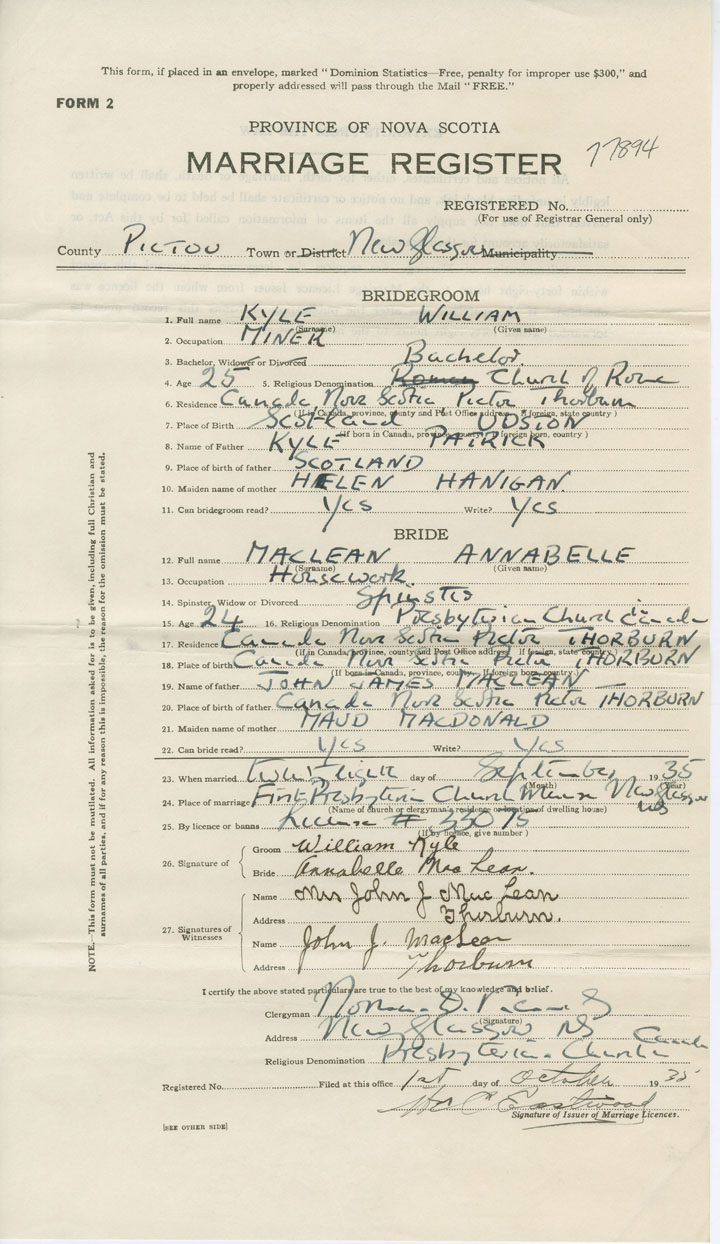 This form, if placed in an envelope, marked "Dominion Statistics—Free, penalty for improper use $300," and
properly addressed will pass through the Mail "FREE."
FORM 2
PROVINCE OF NOVA SCOTIA
MARRIAGE REGISTER 77894
REGISTERED No.
(For use of Registrar General only)
County PICTOU Town or District New Glasgow Municipality
BRIDEGROOM
1. Full name KYLE WILLIAM
(Surname) (Given name)
2. Occupation MINER
3. Bachelor, Widower or Divorced Bachelor.
4. Age 25 5. Religious Denomination Roman Church of Rome
6. Residence Canada Nova Scotia Pictou Thorburn
(If in Canada, province, county and Post Office address. If foreign, state country)
7. Place of Birth Scotland
(If born in Canada, province, county. If foreign born, country)
8. Name of Father KYLE PATRICK
9. Place of birth of father SCOTLAND
10. Maiden name of mother HELEN HANIGAN.
11. Can bridegroom read? Yes Write? Yes
BRIDE
12. Full name MACLEAN ANNABELLE
(Surname) (Given name)
13. Occupation Housework.
14. Spinster, Widow or Divorced Spinster
15. Age 24 16. Religious Denomination Presbyterian Church in Canada
17. Residence Canada Nova Scotia Pictou THORBURN
(If in Canada, province, county and Post Office address. If foreign, state country)
18. Place of birth Canada Nova Scotia Pictou THORBURN
(If born in Canada, province, county. If foreign born, country)
19. Name of father JOHN JAMES MACLEAN
20. Place of birth of father Canada Nova Scotia Pictou THORBURN
21. Maiden name of mother MAUD MACDONALD
22. Can bride read? Yes Write? Yes
23. When married Twenty Eight day of September 1935
(Month) (Year)
24. Place of marriage First Presbyterian Church Manse New Glasgow
(Name of church or clergyman's residence or location of dwelling house) NS
25. By licence or banns License #
(If by licence, give number)
26. Signature of
Groom William Kyle
Bride Annabelle MacLean.
27. Signatures of Witnesses
Name Mrs John J MacLean
Address Thorburn.
Name John J. MacLean
Address Thorburn
I certify the above stated particulars are true to the best of my knowledge and belief.
Clergyman Norman D.
(Signature)
Address New Glasgow NS
Religious Denomination Presbyterian Church Canada
Registered No. Filed at this office 1st day of October 1935
Eastwood
Signature of Issuer of Marriage Licences.
[SEE OTHER SIDE]
NOTE.—This form must not be mutilated. All information asked for is to be given, including full Christian and
surnames of all parties, and if for any reason this is impossible, the reason for the omission must be stated.